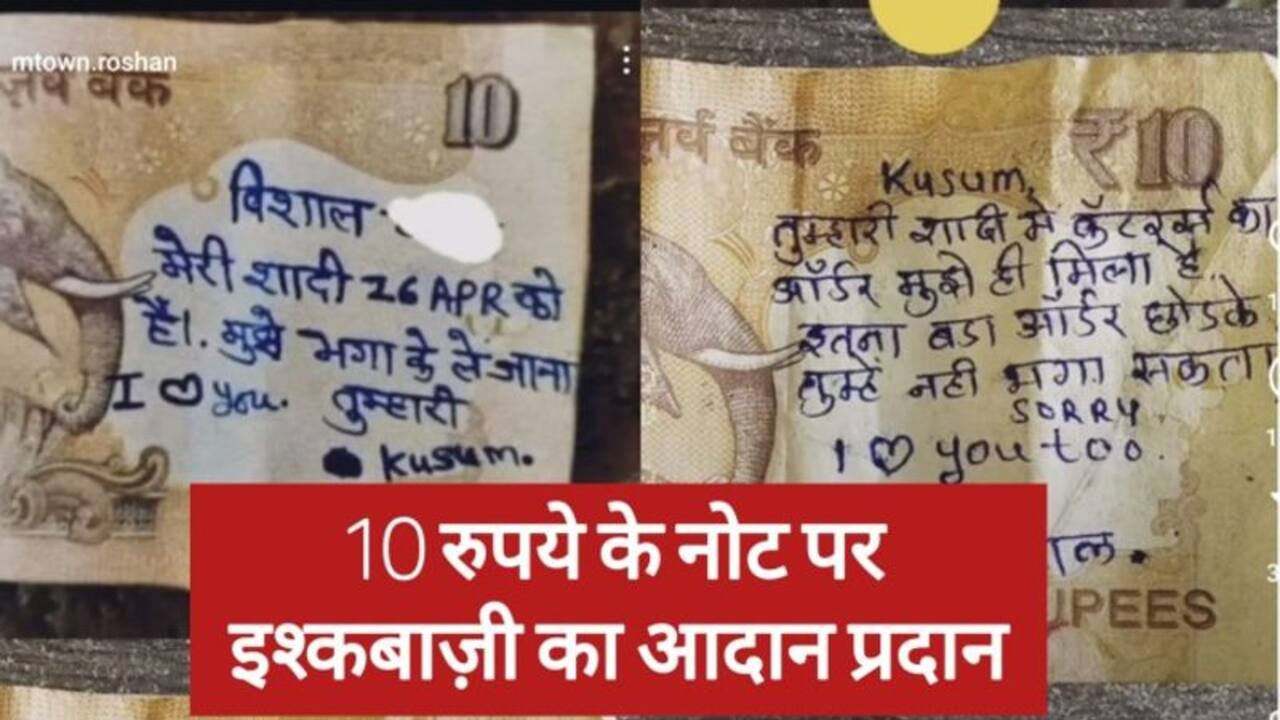 mtown.roshan
ज़र्व बैंक
10
विशाल
मेरी शादी 26 APR को
है। मुझे भगा के ले जाना
I ♡ you. तुम्हारी
Kusum.
र्व बैंक
₹10
Kusum,
तुम्हारी शादी मे कॅटरर्स का
ऑर्डर मुझे ही मिला है..
इतना बडा ऑर्डर छोडके
तुम्हें नही भगा सकता
SORRY.
I ♡ you too.
ाल.
UPEES
10 रुपये के नोट पर
इश्कबाज़ी का आदान प्रदान